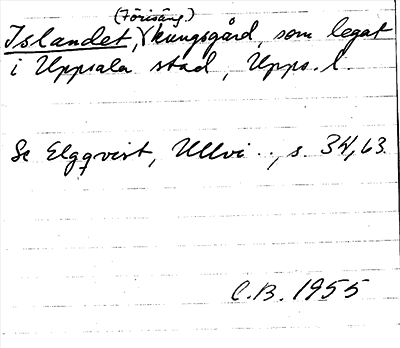 (Förisäng)
Islandet, kungsgård, som legat
i Uppsala stad, Upps. l.
Se Elgqvist, Ullvi .., s. 34, 63.
C.B. 1955